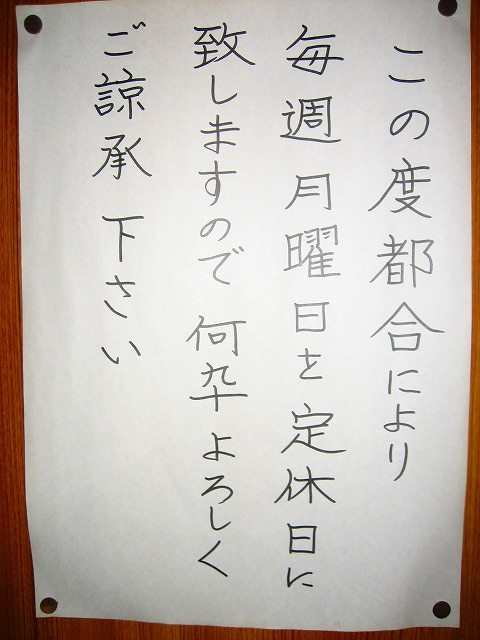 この度都合により
毎週月曜日を定休日に
致しますので何卆よろしく
ご諒承下さい